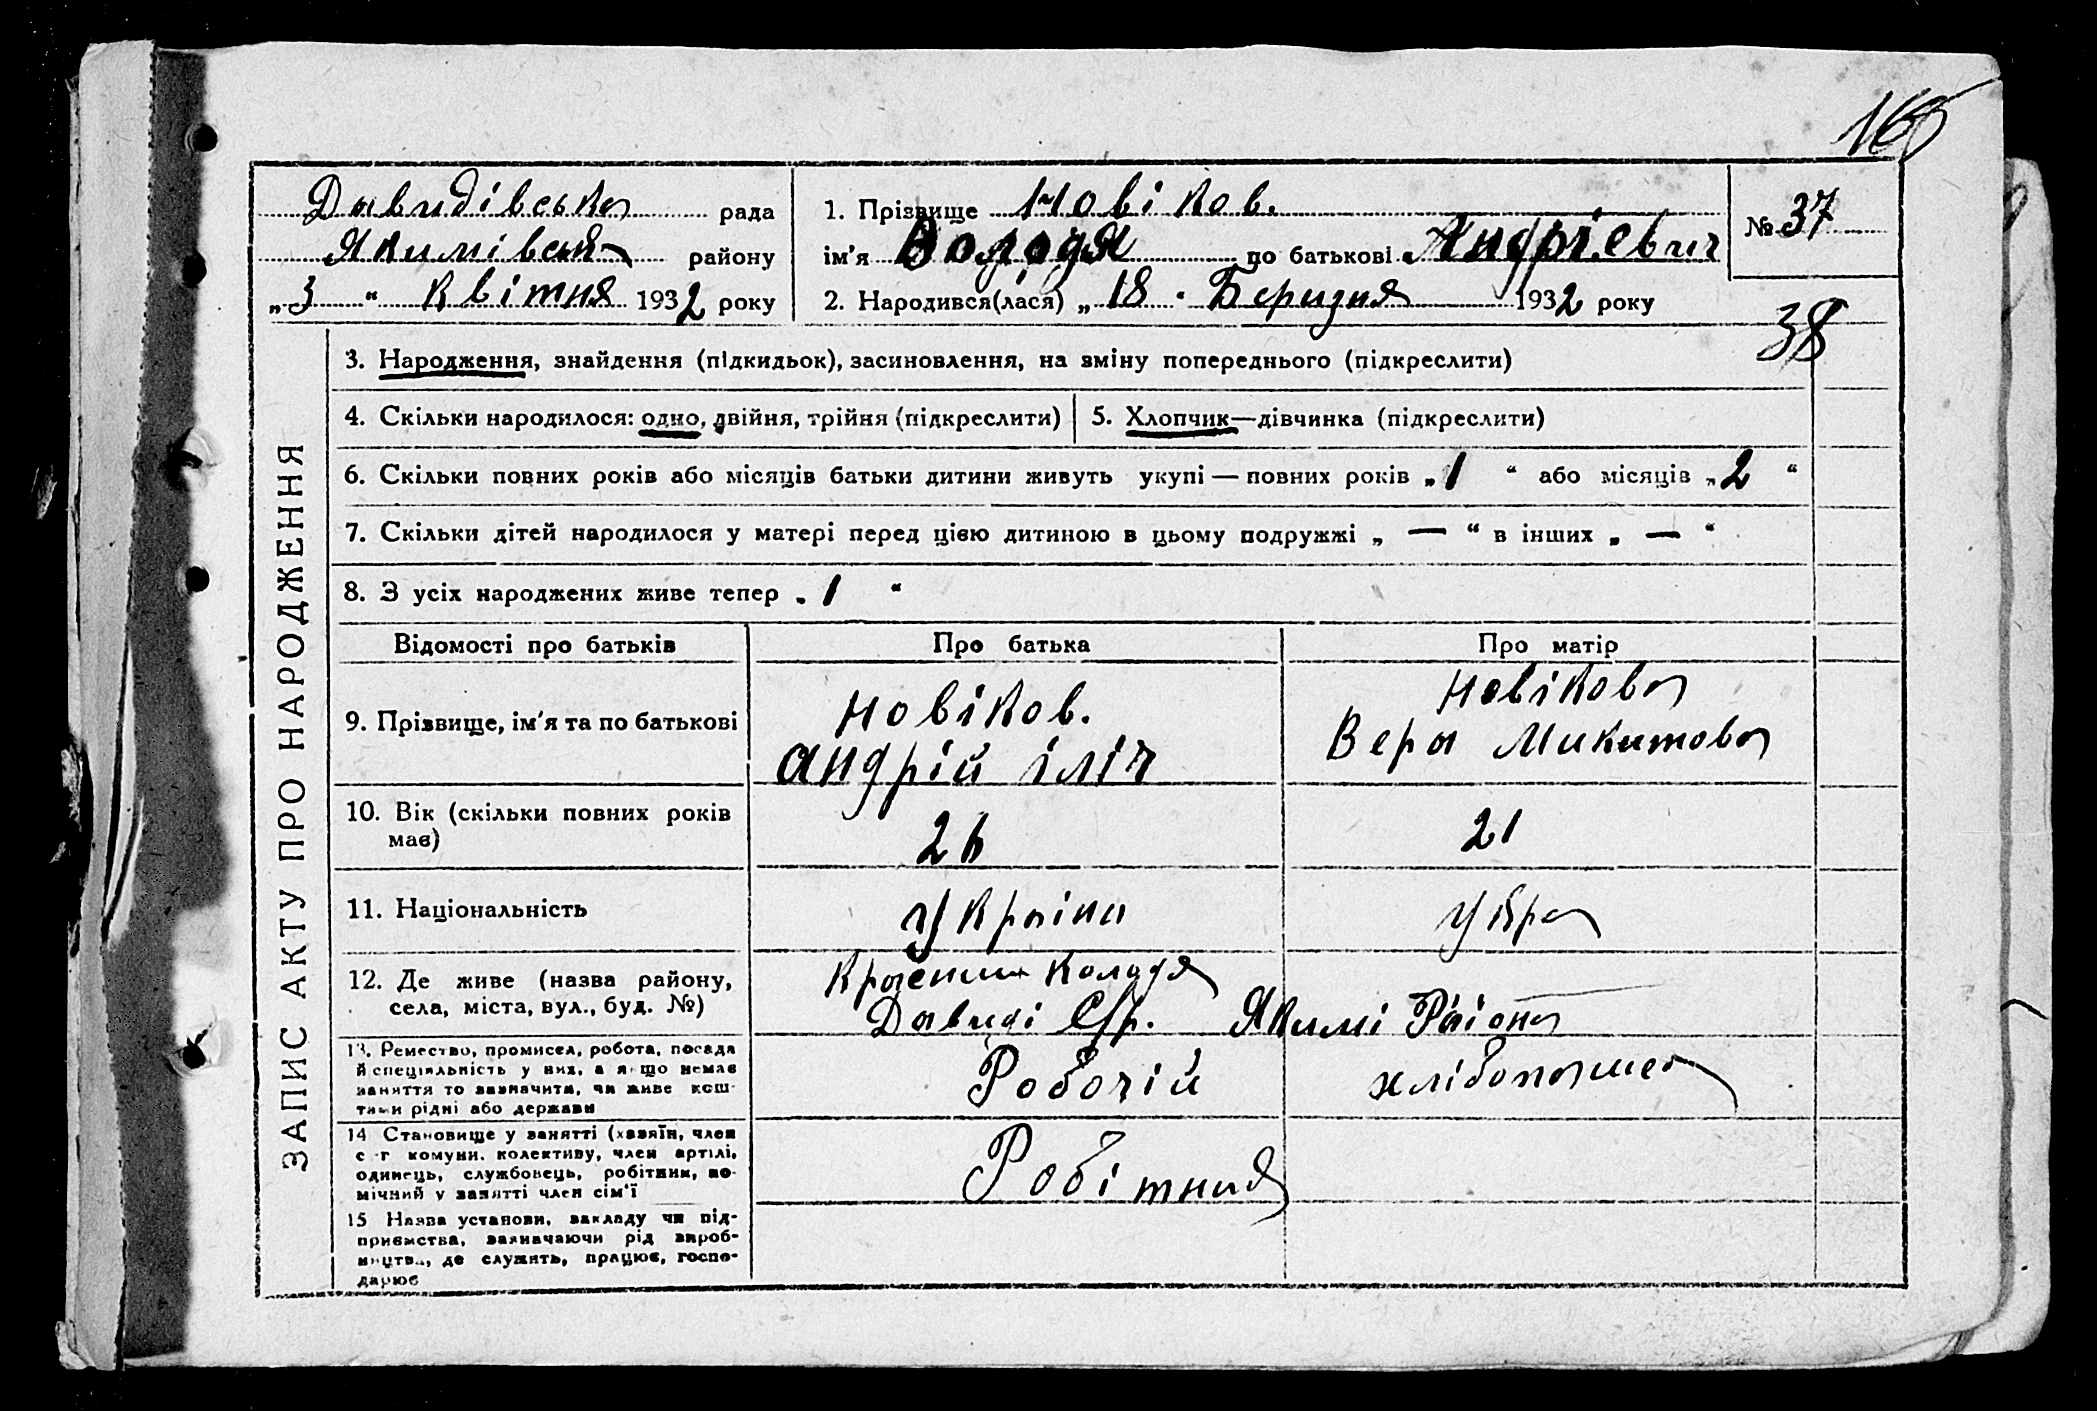 Давидівська рада
Якимівськ району
„3“ Квітня 1932 року
1. Прізвище Новіков.
ім'я Володя по батькові Андрієвич
2. Народився(лася) „18. Березня 1932 року
№ 37
38
ЗАПИС АКТУ ПРО НАРОДЖЕННЯ
3. Народження, знайдення (підкидьок), засиновлення, на зміну попереднього (підкреслити)
4. Скільки народилося: одно, двійня, трійня (підкреслити)
5. Хлопчик—дівчинка (підкреслити)
6. Скільки повних років або місяців батьки дитини живуть укупі — повних років „1“ або місяців „2“
7. Скільки дітей народилося у матері перед цією дитиною в цьому подружжі „—“ в інших „—“
8. З усіх народжених живе тепер „1“
Відомості про батьків Про батька Про матір
9. Прізвище, ім'я та по батькові
Новіков.
Андрій Іліч
Новікова
Вера Микитова
10. Вік (скільки повних років
має)
26
21
11. Національність
Україна
Укра
12. Де живе (назва району,
села, міста, вул., буд. №)
Колодя
Давиді С/р. Якимі Раіона
13. Ремество, промисел, робота, посада
й спеціяльність у них, а якщо немає
заняття то зазначити, чи живе кош-
тами рідні або держави
Робочій
хлібопашец
14 Становище у занятті (хазяїн, член
с-г комуни, колективу, член артілі,
одинець, службовець, робітник, по-
мічний у занятті член сім'ї
Робітник
15 Назва установи, закладу чи під-
приємства, зазначаючи рід вироб-
ництва, де служить, працює, госпо-
дарює